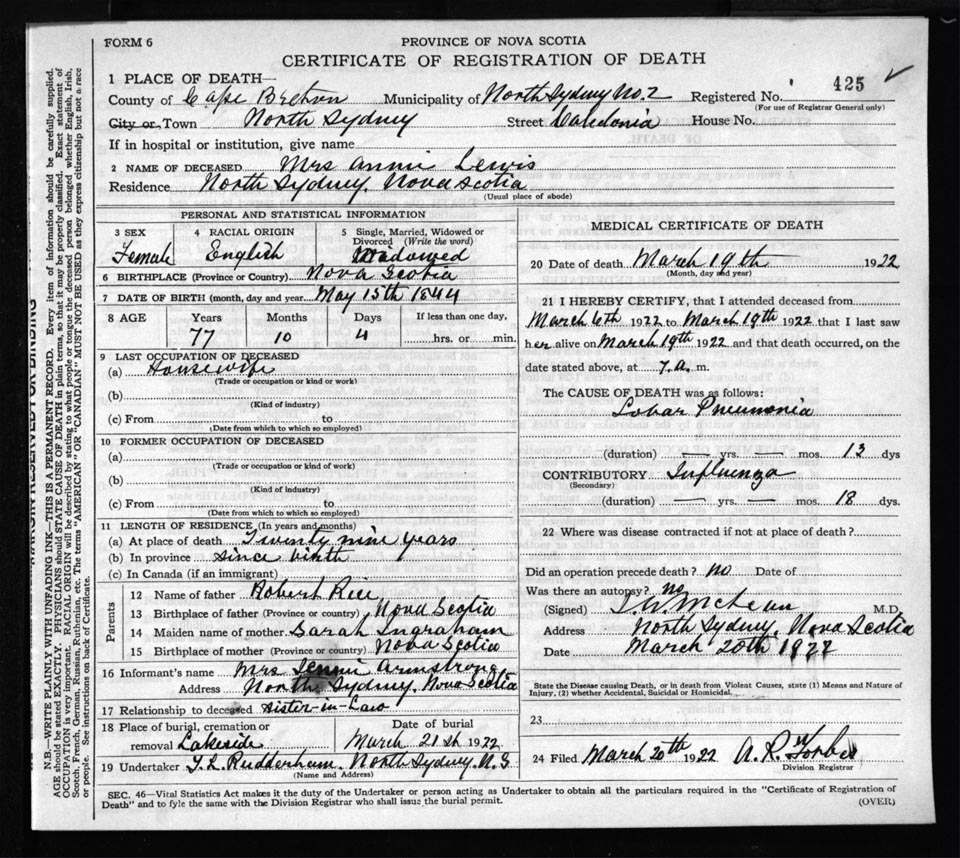 FORM 6
PROVINCE OF NOVA SCOTIA
CERTIFICATE OF REGISTRATION OF DEATH
1 PLACE OF DEATH—
County of Cape Breton Municipality of North Sydney No. 2 Registered No. 425 ✓
(For use of Registrar General only)
City or Town North Sydney Street Caledonia House No.
If in hospital or institution, give name
2 NAME OF DECEASED Mrs Annie Lewis
Residence North Sydney, Nova Scotia
(Usual place of abode)
PERSONAL AND STATISTICAL INFORMATION
3 SEX 4 RACIAL ORIGIN 5 Single, Married, Widowed or Divorced (Write the word)
Female English Widowed
6 BIRTHPLACE (Province or Country) Nova Scotia
7 DATE OF BIRTH (month, day and year) May 15th 1844
8 AGE Years Months Days If less than one day,
77 10 4 hrs. or min.
9 LAST OCCUPATION OF DECEASED
(a) Housewife
(Trade or occupation or kind or work)
(b)
(Kind of industry)
(c) From to
(Date from which to which so employed)
10 FORMER OCCUPATION OF DECEASED
(a)
(Trade or occupation or kind of work)
(b)
(Kind of industry)
(c) From to
(Date from which to which so employed)
11 LENGTH OF RESIDENCE (In years and months)
(a) At place of death Twenty nine years
(b) In province Since birth
(c) In Canada (if an immigrant)
Parents
12 Name of father Robert Rice
13 Birthplace of father (Province or country) Nova Scotia
14 Maiden name of mother Sarah Ingraham
15 Birthplace of mother (Province or country) Nova Scotia
16 Informant's name Mrs Jennie Armstrong
Address North Sydney, Nova Scotia
17 Relationship to deceased Sister-in-Law
18 Place of burial, cremation or removal Lakeside
Date of burial March 21st 1922
19 Undertaker Rudderham, North Sydney N.S
(Name and Address)
MEDICAL CERTIFICATE OF DEATH
20 Date of death March 19th 1922
(Month, day and year)
21 I HEREBY CERTIFY, that I attended deceased from
March 6th 1922 to March 19th 1922 that I last saw
her alive on March 19th 1922 and that death occurred, on the
date stated above, at 7. a. m.
The CAUSE OF DEATH was as follows:
Lobar Pneumonia
(duration) — yrs. — mos. 13 dys
CONTRIBUTORY Influenza
(Secondary)
(duration) — yrs. — mos. 18 dys.
22 Where was disease contracted if not at place of death?
Did an operation precede death? no Date of
Was there an autopsy? no
(Signed) McLean M.D.
Address North Sydney, Nova Scotia
Date March 20th 1922
State the Disease causing Death, or in death from Violent Causes, state (1) Means and Nature of
Injury, (2) whether Accidental, Suicidal or Homicidal.
23
24 Filed March 20th 1922 A. R. Forbes
Division Registrar
SEC. 46—Vital Statistics Act makes it the duty of the Undertaker or person acting as Undertaker to obtain all the particulars required in the "Certificate of Registration of
Death" and to fyle the same with the Division Registrar who shall issue the burial permit.
(OVER)
MARGIN RESERVED FOR BINDING
N.B.—WRITE PLAINLY WITH UNFADING INK—THIS IS A PERMANENT RECORD. Every item of information should be carefully supplied.
AGE should be stated EXACTLY. PHYSICIANS should STATE CAUSE OF DEATH in plain terms, so that it may be properly classified. Exact statement of
OCCUPATION is very important. RACIAL ORIGIN will be described by stating to what people or tongue the deceased person belonged whether English, Irish,
Scotch, French, German, Russian, Ruthenian, etc. The terms "AMERICAN" OR "CANADIAN" MUST NOT BE USED as they express citizenship but not a race
or people. See instructions on back of Certificate.